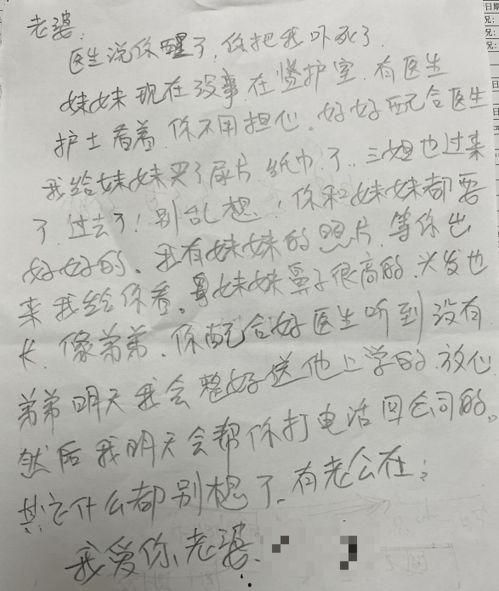 老婆:
医生说你醒了,你把我吓死了.
妹妹现在没事.在监护室.有医生
护士看着.你不用担心.好好配合医生
我给妹妹买了尿片 纸巾了.三姐也过来
了.过去了!别乱想,你和妹妹都要
好好的.我有妹妹的照片.等你出
来我给你看。妹妹鼻子很高的.头发也
长.像弟弟.你配合好医生听到没有
弟弟明天我会整好送他上学的.放心
然后我明天会帮你打电话回公司的。
其它什么都别想了.有老公在;
我爱你,老婆.